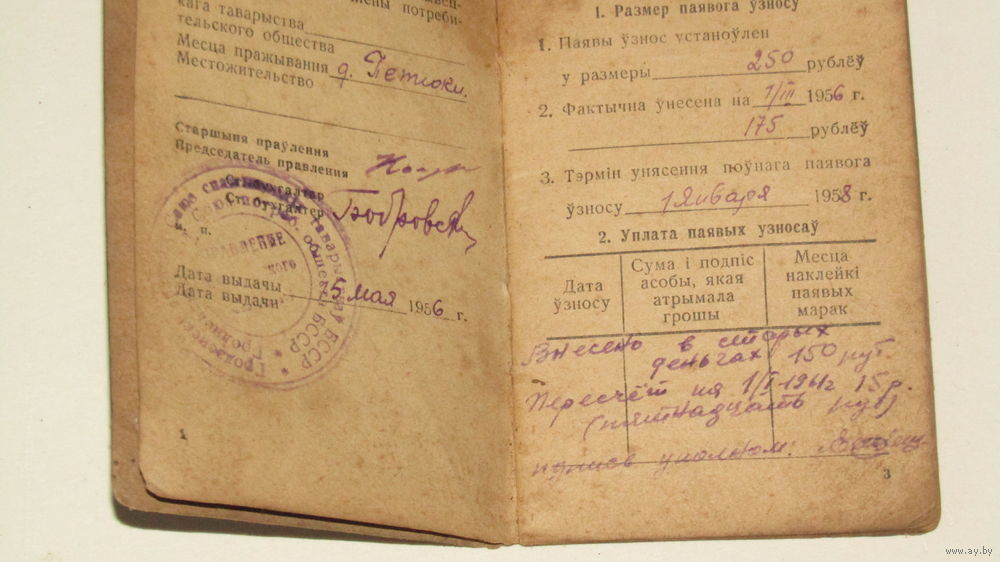 кага таварыства
тельского общества
Месца пражывання д. Петюки.
Местожительство
Старшыня праўлення
Председатель правления
Ст. бухгалтар
Ст. бухгалтер Бобровск
м. п.
Дата выдачы
Дата выдачи 15 мая 1956 г.
1. Размер паявога ўзносу
1. Паявы ўзнос устаноўлен
у размеры 250 рублёў
2. Фактычна ўнесена на 1/III 1956 г.
175 рублёў
3. Тэрмін унясення поўнага паявога
ўзносу 1 Января 1958 г.
2. Уплата паявых узносаў
Дата ўзносу
Сума і подпіс асобы, якая атрымала грошы
Месца наклейкі паявых марак
Внесено в старых
деньгах 150 руб
Пересчёт на 1/I-1961г 15 р.
(пятнадцать руб)
3
www.ay.by